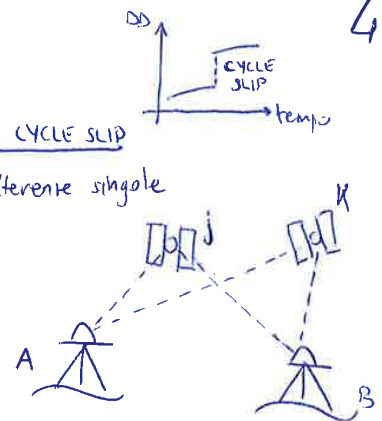 4
DD
CYCLE
SLIP
tempo
CYCLE SLIP
fferenze singole
j
K
A
B